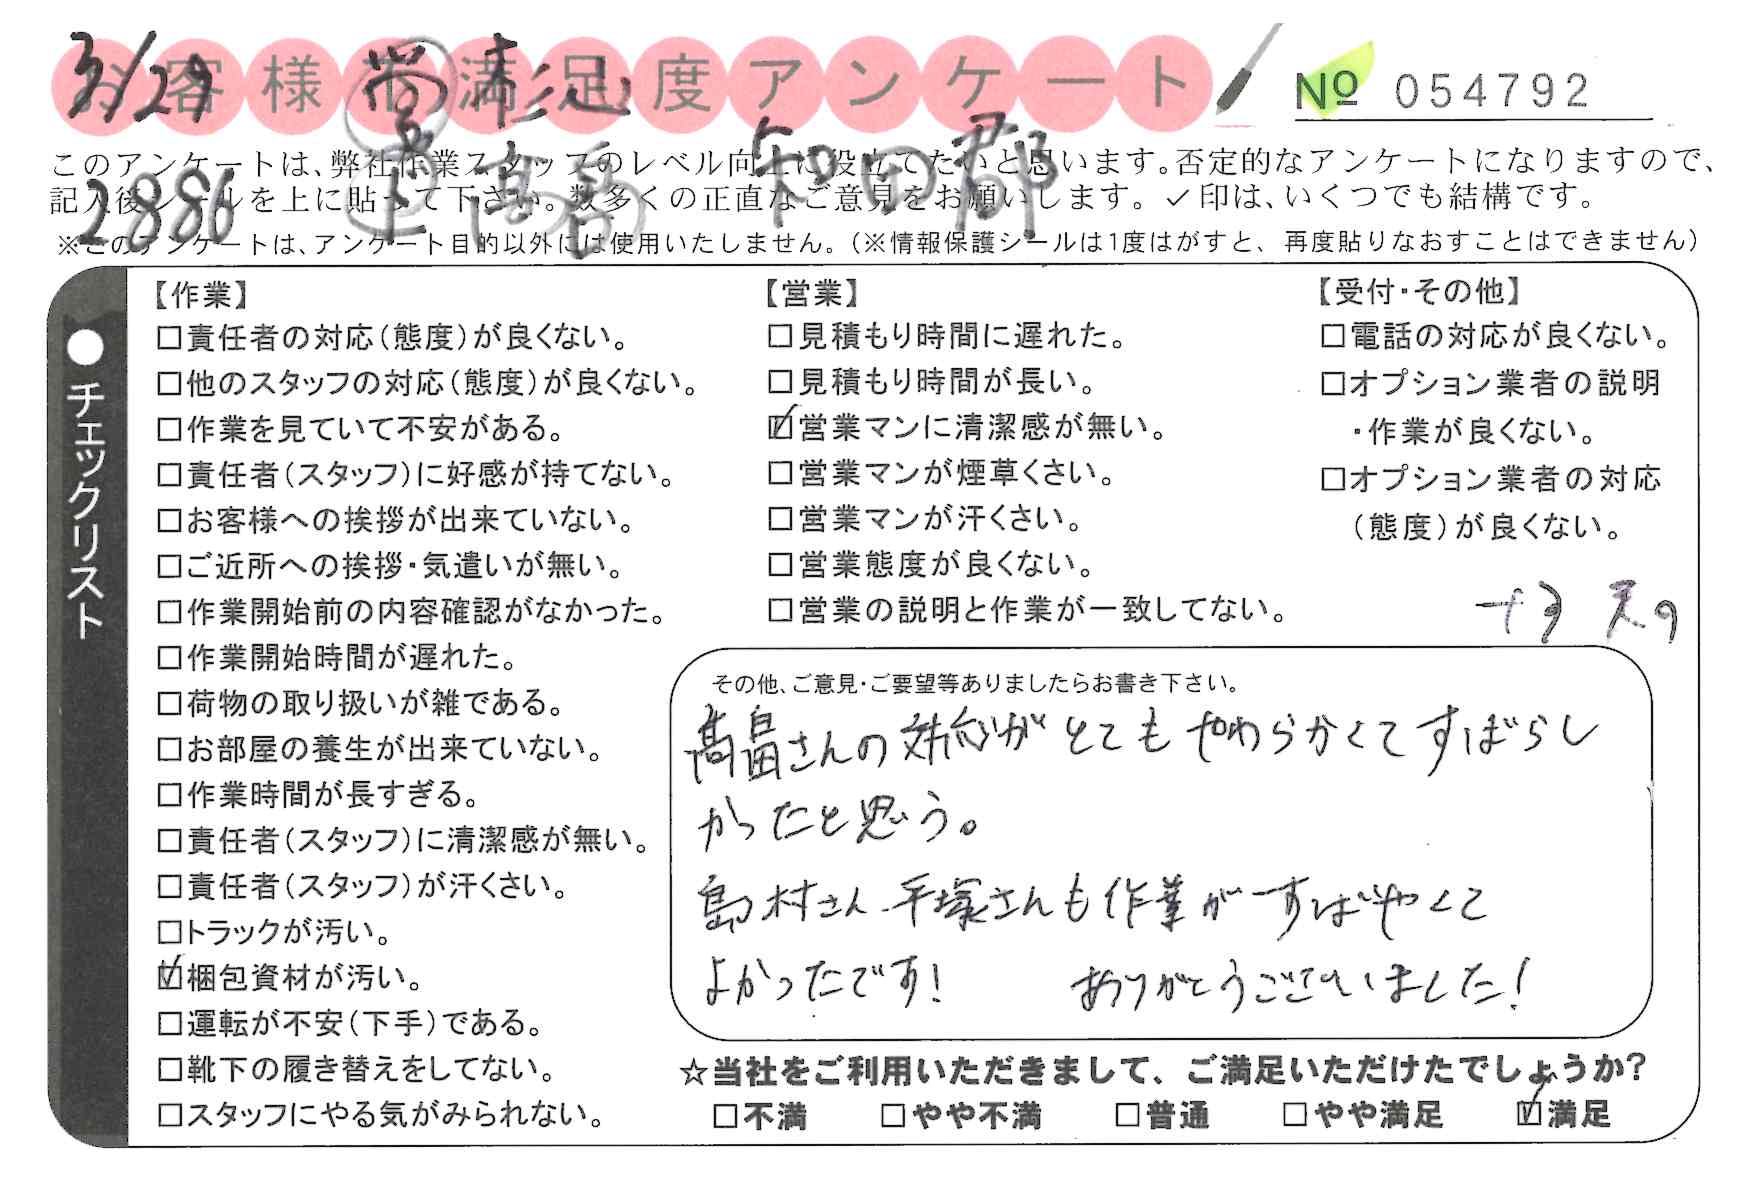 3/29
お客様の満足度アンケート
No 054792
2886
このアンケートは、弊社作業スタッフのレベル向上に役立てたいと思います。否定的なアンケートになりますので、
記入後シールを上に貼って下さい。数多くの正直なご意見をお願いします。✓印は、いくつでも結構です。
※このアンケートは、アンケート目的以外には使用いたしません。(※情報保護シールは1度はがすと、再度貼りなおすことはできません)
●チェックリスト
【作業】
□責任者の対応(態度)が良くない。
□他のスタッフの対応(態度)が良くない。
□作業を見ていて不安がある。
□責任者(スタッフ)に好感が持てない。
□お客様への挨拶が出来ていない。
□ご近所への挨拶・気遣いが無い。
□作業開始前の内容確認がなかった。
□作業開始時間が遅れた。
□荷物の取り扱いが雑である。
□お部屋の養生が出来ていない。
□作業時間が長すぎる。
□責任者(スタッフ)に清潔感が無い。
□責任者(スタッフ)が汗くさい。
□トラックが汚い。
☑梱包資材が汚い。
□運転が不安(下手)である。
□靴下の履き替えをしてない。
□スタッフにやる気がみられない。
【営業】
□見積もり時間に遅れた。
□見積もり時間が長い。
☑営業マンに清潔感が無い。
□営業マンが煙草くさい。
□営業マンが汗くさい。
□営業態度が良くない。
□営業の説明と作業が一致してない。
【受付・その他】
□電話の対応が良くない。
□オプション業者の説明
・作業が良くない。
□オプション業者の対応
(態度)が良くない。
その他、ご意見・ご要望等ありましたらお書き下さい。
髙畠さんの対応がとてもやわらかくてすばらし
かったと思う。
島村さん、平塚さんも作業がすばやくて
よかったです! ありがとうございました!
☆当社をご利用いただきまして、ご満足いただけたでしょうか?
□不満 □やや不満 □普通 □やや満足 ☑満足